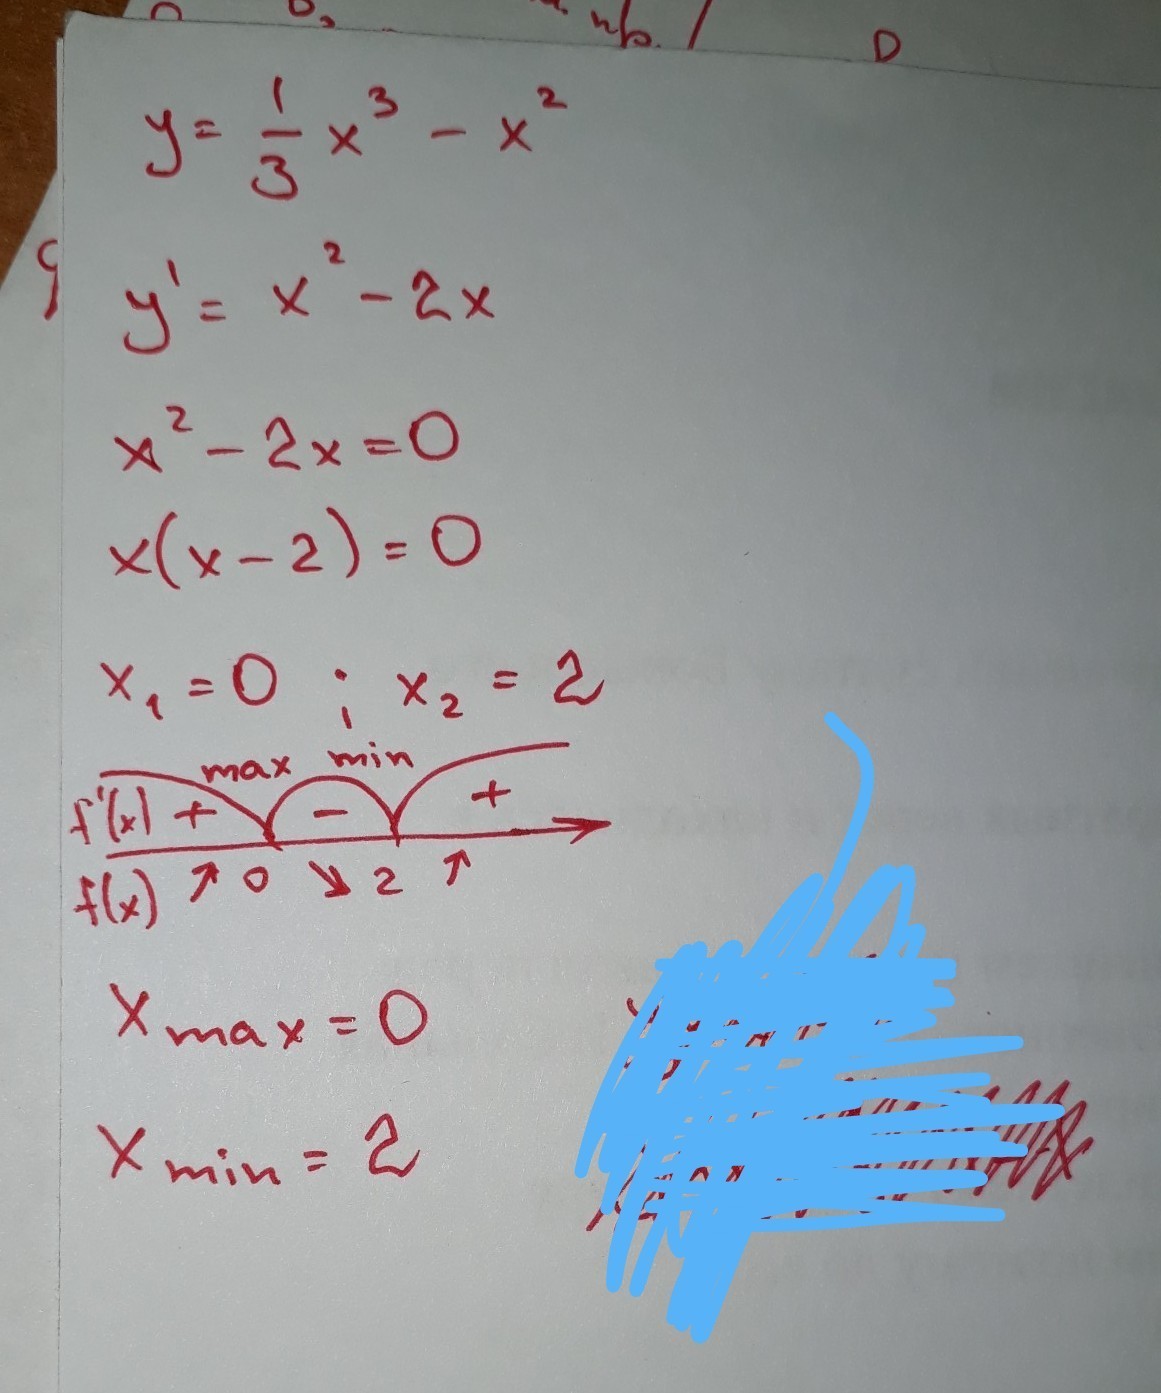 y = 1/3 x³ - x²
y' = x² - 2x
x² - 2x = 0
x(x - 2) = 0
x₁ = 0 ; x₂ = 2
max min
f'(x) + - +
f(x) ↗ 0 ↘ 2 ↗
x max = 0
x min = 2